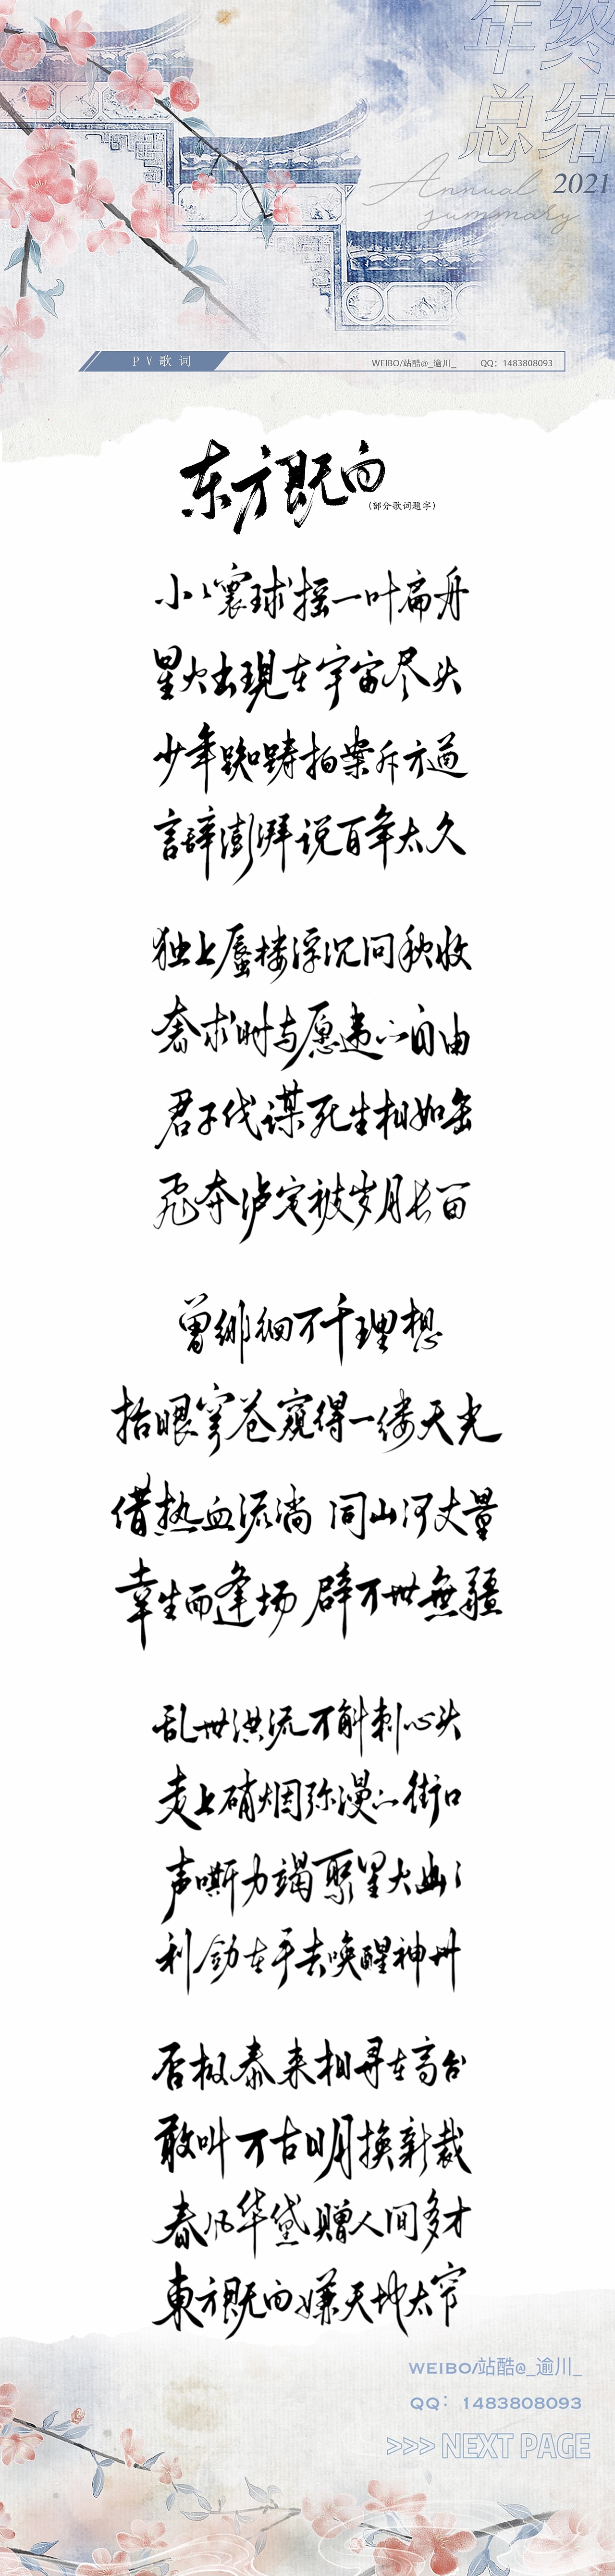 年终
总结
Annual 2021
summary
PV歌词
WEIBO/站酷@_逾川_ QQ：1483808093
东方既白
（部分歌词题字）
小小寰球摇一叶扁舟
星火出現在宇宙尽头
少年踟蹰拍案斥方遒
言辞澎湃说百年太久
独上蜃楼浮沉问秋收
奢求时与愿违的自由
君子代谋死生相如缶
飞奔泸定被岁月长留
曾徘徊万千理想
抬眼穹苍窥得一缕天光
借热血流淌 同山河丈量
幸生而逢场 辟万世無疆
乱世洪流万斛刺心头
走上硝烟弥漫的街口
声嘶力竭聚星火幽幽
利剑在手去唤醒神州
否极泰来相寻在高台
敢叫万古日月换新裁
春风华黛赠人间多才
東方既白嫌天地太窄
WEIBO/站酷@_逾川_
QQ：1483808093
>>> NEXT PAGE